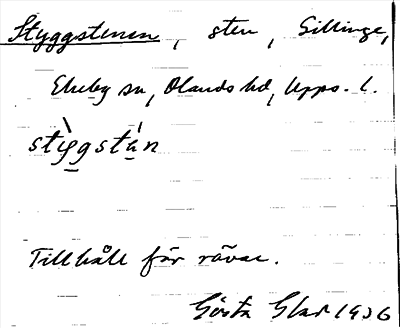 Styggstenen, sten, Sillinge,
Ekeby sn, Olands hd, Upps. l.
stỳgstán
Tillhåll för rävar.
Gösta Glad 1936